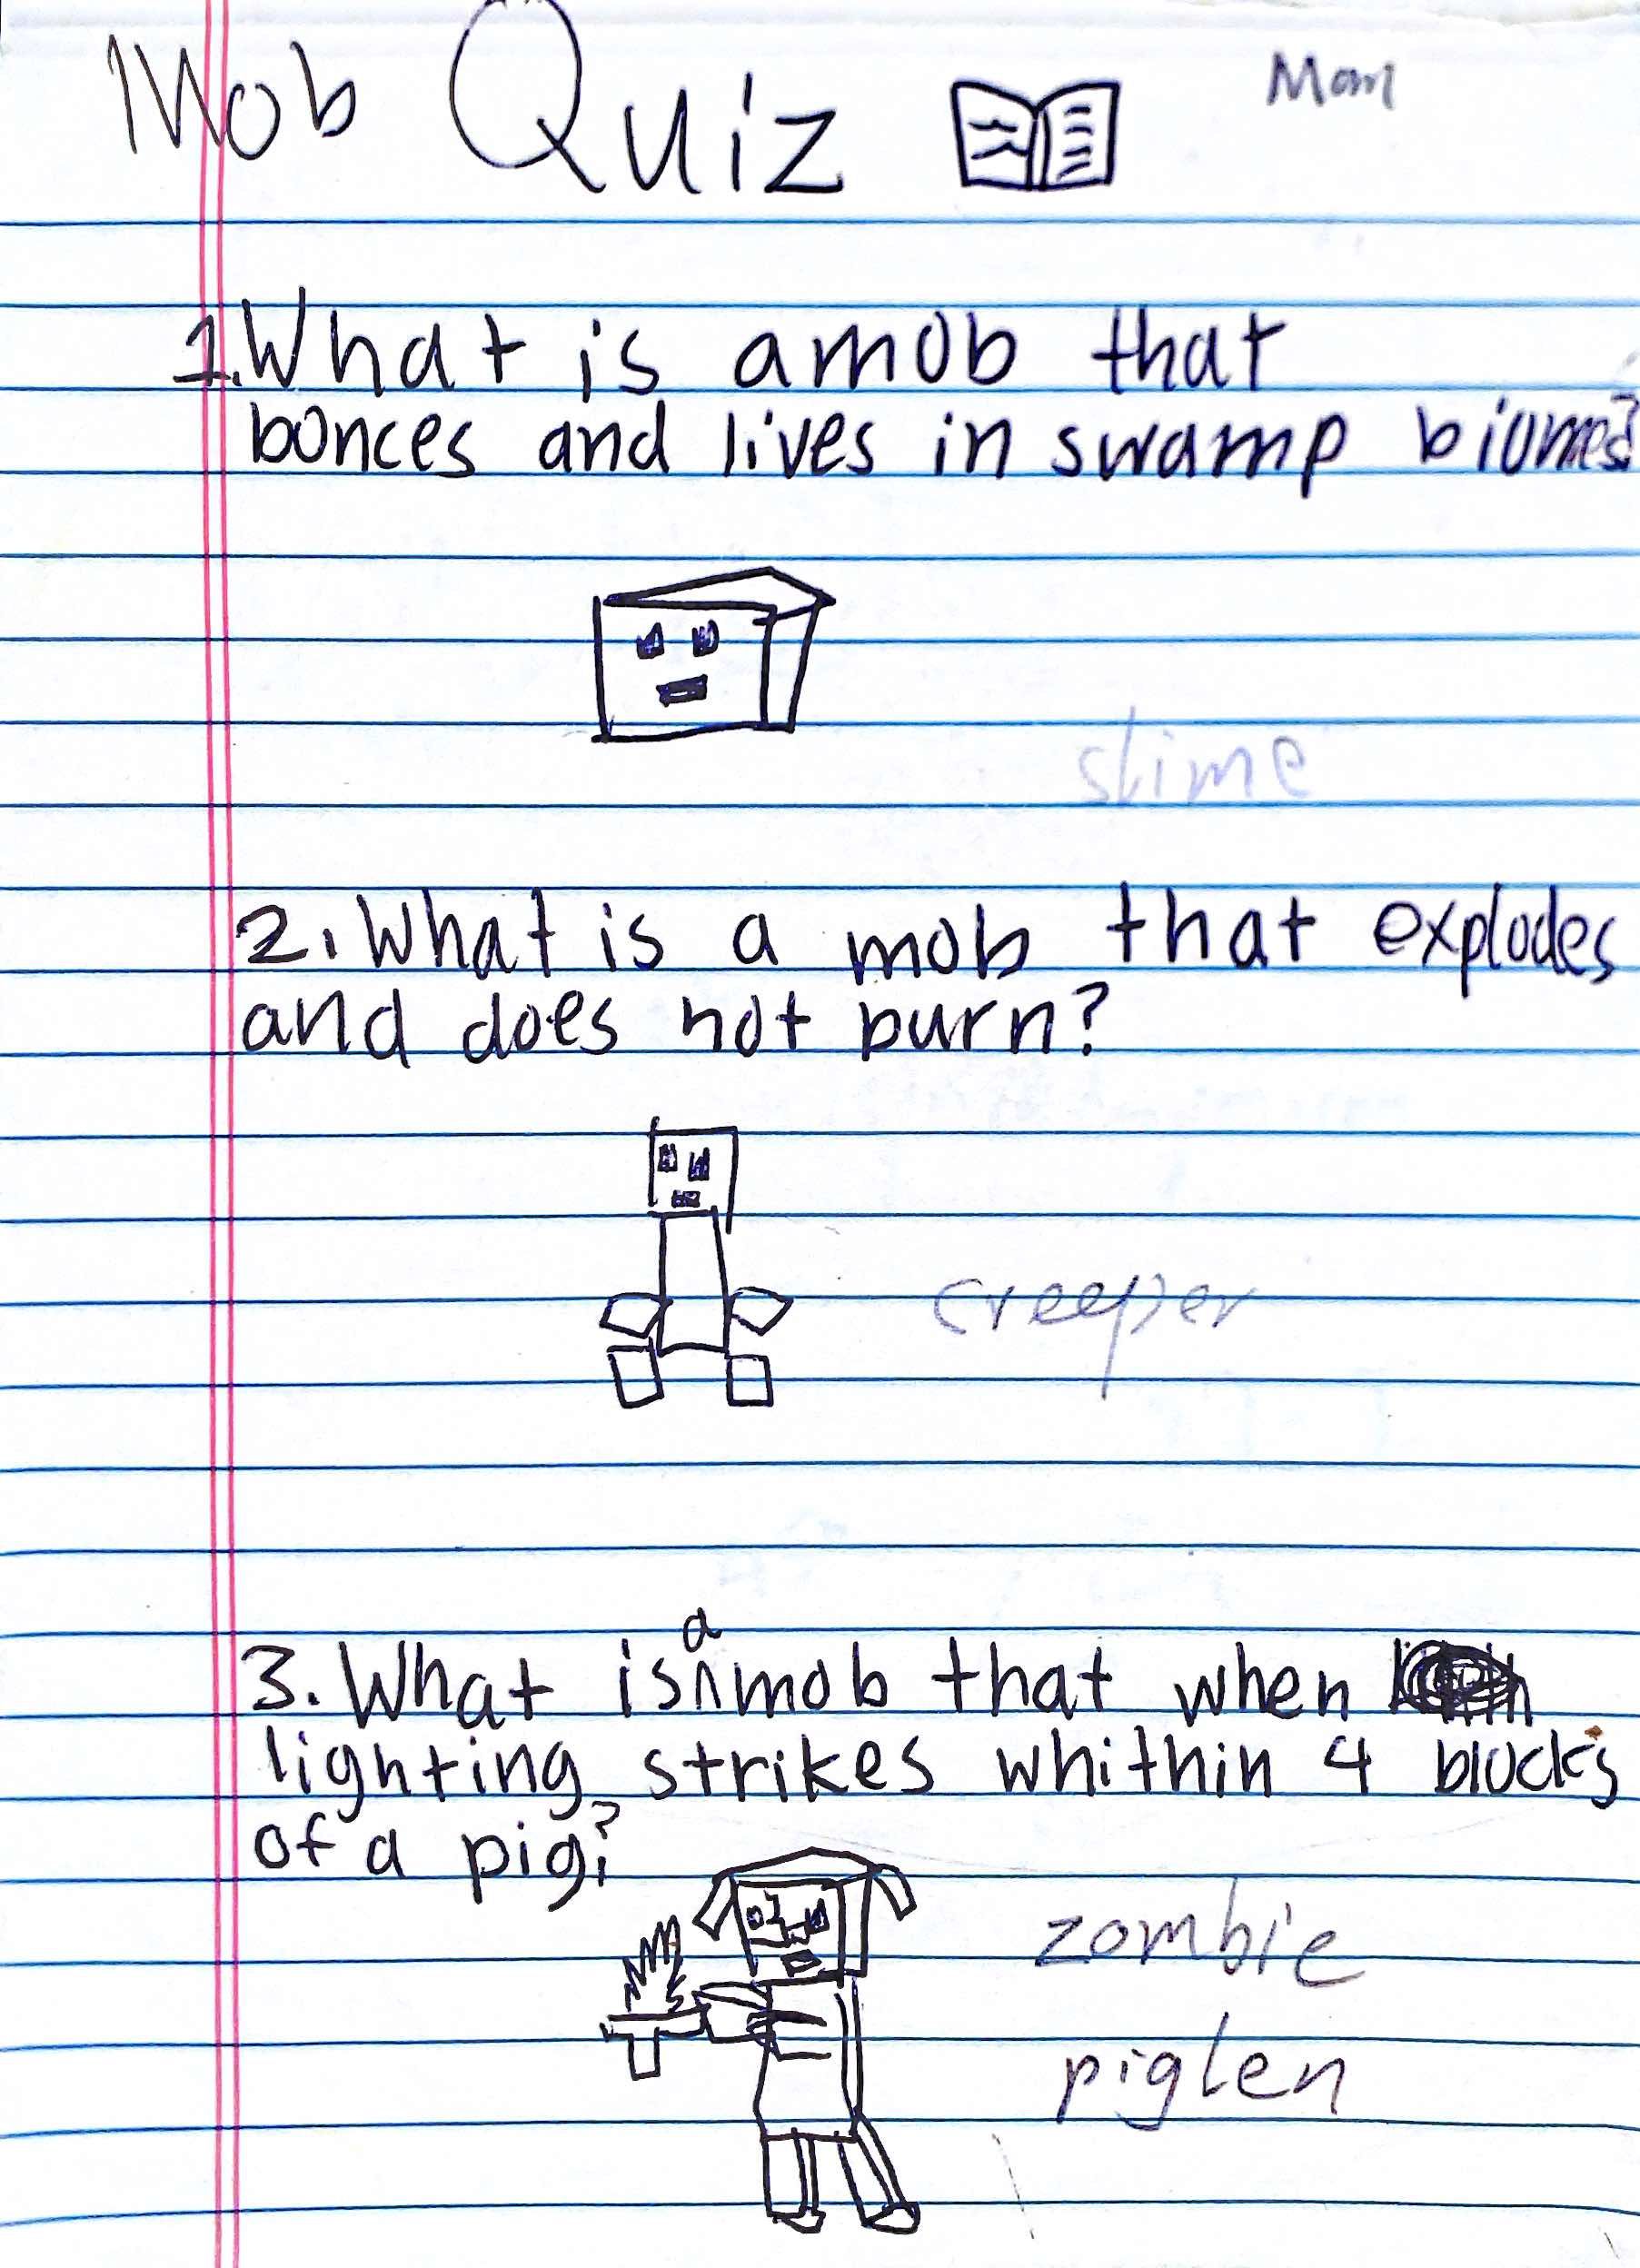 Mob Quiz Mom
1. What is a mob that
bonces and lives in swamp biomes?
slime
2. What is a mob that explodes
and does not burn?
creeper
a
3. What is ^ mob that when
lighting strikes whithin 4 blocks
of a pig?
zombie
piglen